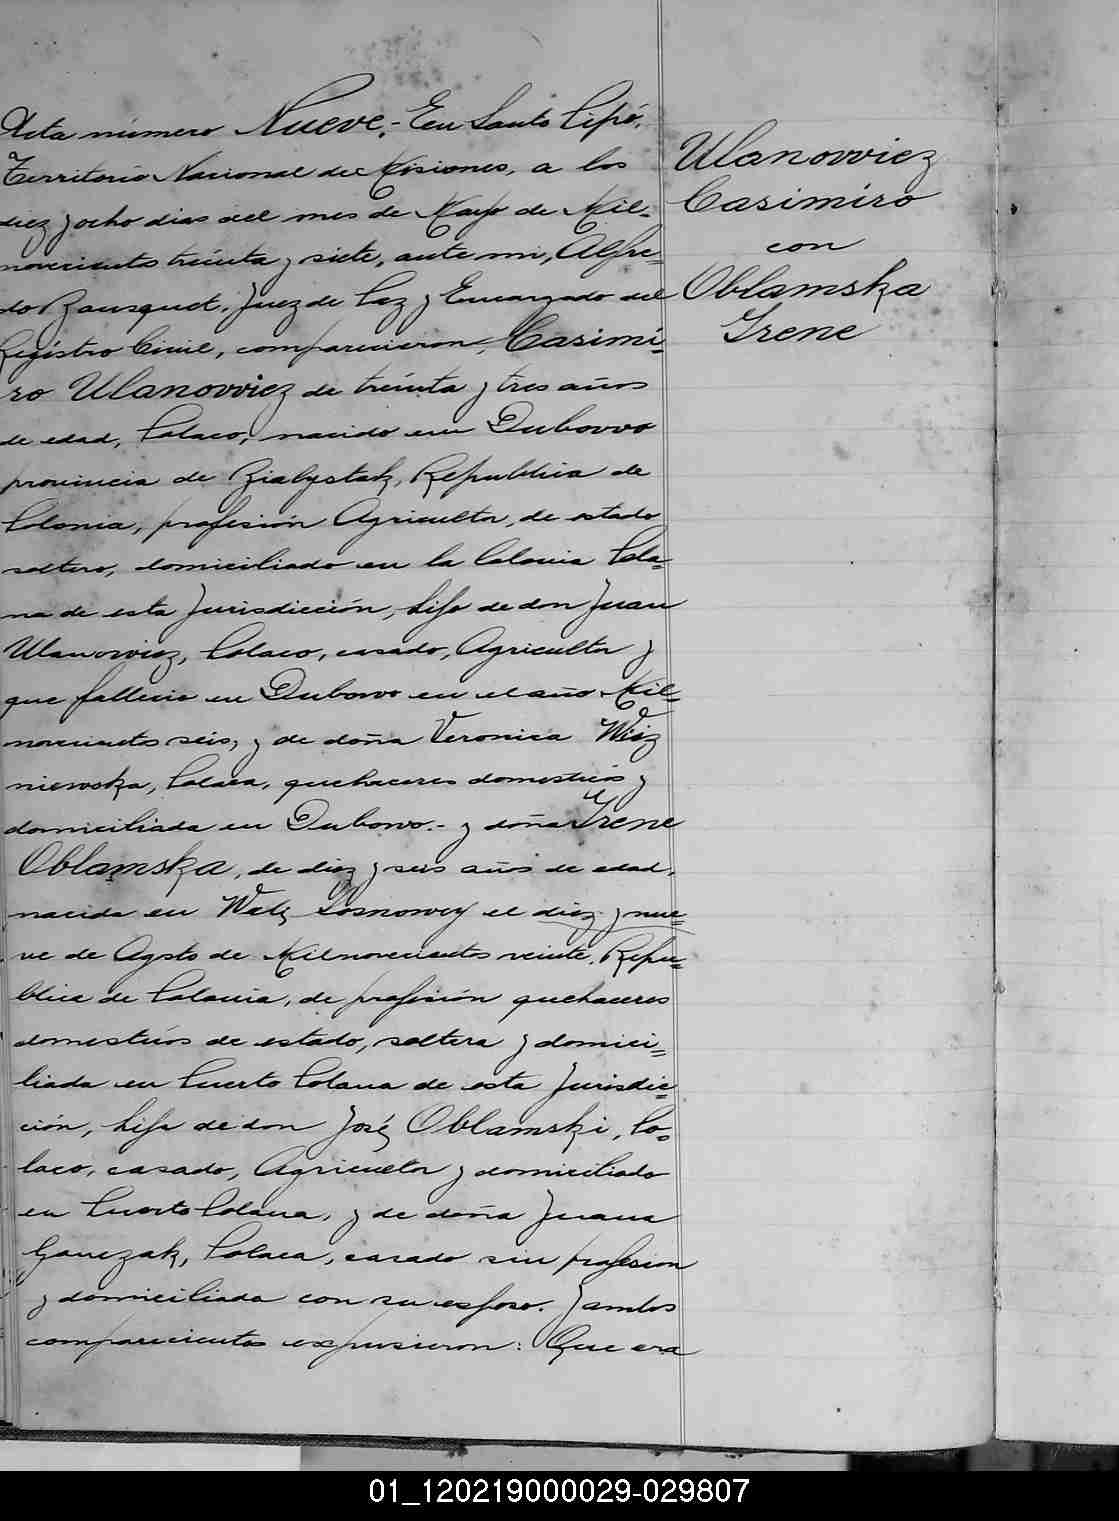 Acta número Nueve.- En Santo Pipó,
Territorio Nacional de Misiones, a los
diez y ocho dias del mes de Mayo de Mil-
novecientos treinta y siete, ante mi, Alfre-
do Bousquet, Juez de Paz y Encargado del
Registro Civil, comparecieron, Casimi-
ro Ulanovviez de treinta y tres años
de edad, Polaco, nacido en Dubovvo
provincia de Bialystok, Republica de
Polonia, profesión Agricultor, de estado
soltero, domiciliado en la Colonia Pola-
na de esta Jurisdicción, hijo de don Juan
Ulanowiez, Polaco, casado, Agricultor y
que fallecio en Dubowo en el año Mil-
novecientos seis, y de doña Veronica Wiz
niewska, Polaca, quehaceres domesticos y
domiciliada en Dubowo.- y doña Irene
Oblamska, de diez y seis años de edad,
nacida en Sosnowey el diez y nue-
ve de Agsto de Milnovecientos veinte, Repu-
blica de Polonia, de profesión quehaceres
domesticos de estado, soltera y domici-
liada en Puerto Polana de esta Jurisdic-
ción, hija de don José Oblamski, Po-
laco, casado, Agricultor y domiciliado
en Puerto Polana, y de doña Juana
Polaca, casado sin profesion
y domiciliada con su esposo. Y ambos
comparecientes expusieron: Que era
Ulanovviez
Casimiro
con
Oblamska
Irene
01_120219000029-029807